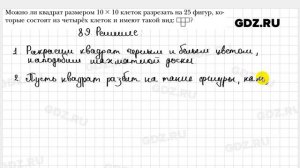 GDZ.RU
Можно ли квадрат размером 10 × 10 клеток разрезать на 25 фигур, ко-
торые состоят из четырёх клеток и имеют такой вид:
89. Решение
1. Раскрасим квадрат черным и белым цветом,
наподобие шахматной доски
2. Пусть квадрат разбит на такие фигуры, каж
GDZ.RU